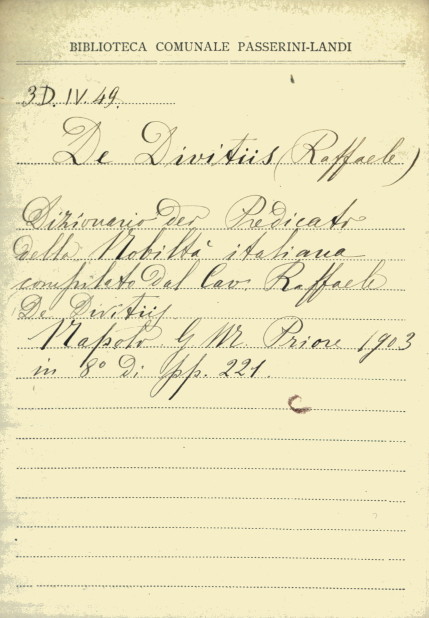 BIBLIOTECA COMUNALE PASSERINI-LANDI
3D. IV. 49.
De Divitiis (Raffaele)
Dizionario dei Predicati
della Nobiltà italiana
compilato dal Cav. Raffaele
De Divitiis
Napoli G M. Priore 1903
in 8º di pp. 221.